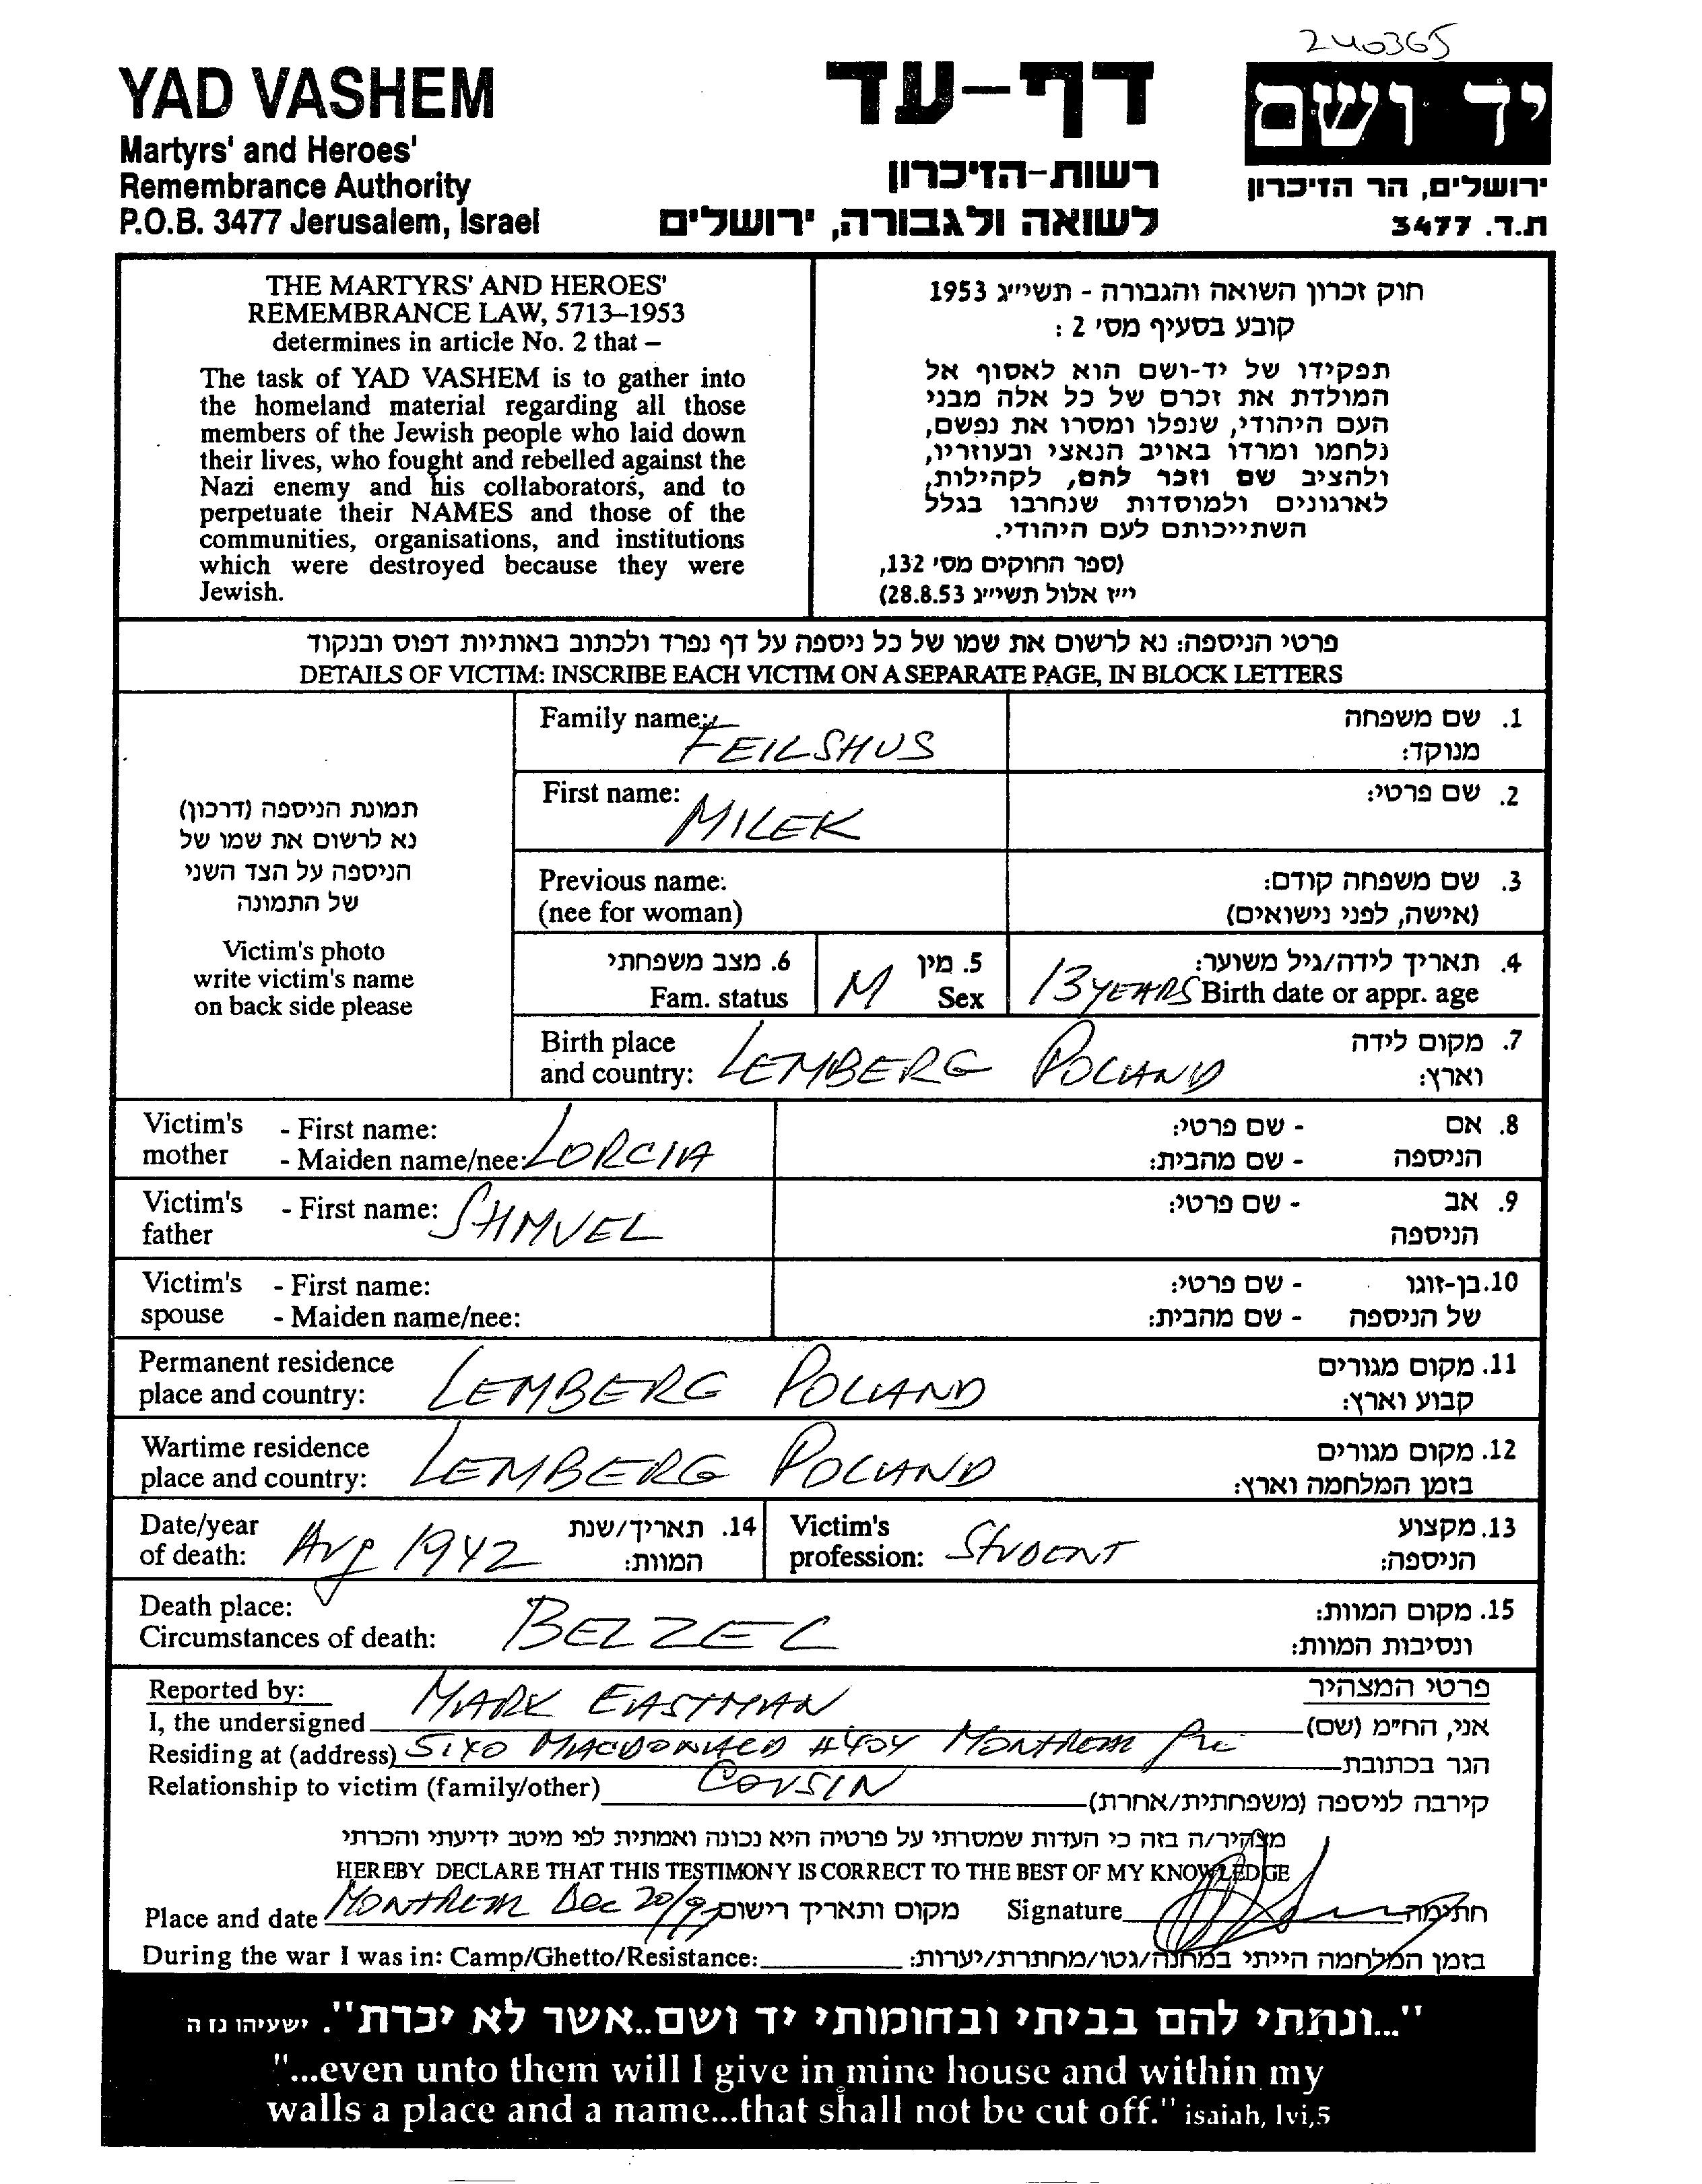 240365
YAD VASHEM
Martyrs' and Heroes'
Remembrance Authority
P.O.B. 3477 Jerusalem, Israel
דף-עד
רשות-הזיכרון
לשואה ולגבורה, ירושלים
יד ושם
ירושלים, הר הזיכרון
ת.ד. 3477
THE MARTYRS' AND HEROES'
REMEMBRANCE LAW, 5713–1953
determines in article No. 2 that –
The task of YAD VASHEM is to gather into
the homeland material regarding all those
members of the Jewish people who laid down
their lives, who fought and rebelled against the
Nazi enemy and his collaborators, and to
perpetuate their NAMES and those of the
communities, organisations, and institutions
which were destroyed because they were
Jewish.
חוק זכרון השואה והגבורה - תשי״ג 1953
קובע בסעיף מס׳ 2 :
תפקידו של יד-ושם הוא לאסוף אל
המולדת את זכרם של כל אלה מבני
העם היהודי, שנפלו ומסרו את נפשם,
נלחמו ומרדו באויב הנאצי ובעוזריו,
ולהציב שם וזכר להם, לקהילות,
לארגונים ולמוסדות שנחרבו בגלל
השתייכותם לעם היהודי.
(ספר החוקים מס׳ 132,
י״ז אלול תשי״ג 28.8.53)
פרטי הניספה: נא לרשום את שמו של כל ניספה על דף נפרד ולכתוב באותיות דפוס ובנקוד
DETAILS OF VICTIM: INSCRIBE EACH VICTIM ON A SEPARATE PAGE, IN BLOCK LETTERS
תמונת הניספה (דרכון)
נא לרשום את שמו של
הניספה על הצד השני
של התמונה
Victim's photo
write victim's name
on back side please
Family name: FEILSHUS 1. שם משפחה
מנוקד:
First name: MILEK 2. שם פרטי:
Previous name: 3. שם משפחה קודם:
(nee for woman) (אישה, לפני נישואים)
6. מצב משפחתי 5. מין 4. תאריך לידה/גיל משוער:
Fam. status M Sex 13 YEARS Birth date or appr. age
Birth place 7. מקום לידה
and country: LEMBERG POLAND וארץ:
Victim's - First name: - שם פרטי: 8. אם
mother - Maiden name/nee: LORCIA - שם מהבית: הניספה
Victim's - First name: SHMUEL - שם פרטי: 9. אב
father הניספה
Victim's - First name: - שם פרטי: 10. בן-זוגו
spouse - Maiden name/nee: - שם מהבית: של הניספה
Permanent residence 11. מקום מגורים
place and country: LEMBERG POLAND קבוע וארץ:
Wartime residence 12. מקום מגורים
place and country: LEMBERG POLAND בזמן המלחמה וארץ:
Date/year 14. תאריך/שנת Victim's 13. מקצוע
of death: Aug 1942 המוות: profession: STUDENT הניספה:
Death place: 15. מקום המוות:
Circumstances of death: BELZEC ונסיבות המוות:
Reported by: פרטי המצהיר
I, the undersigned MARK EASTMAN אני, הח״מ (שם)
Residing at (address) 5170 MACDONALD #404 MONTREAL הגר בכתובת
Relationship to victim (family/other) COUSIN קירבה לניספה (משפחתית/אחרת)
מצהיר/ה בזה כי העדות שמסרתי על פרטיה היא נכונה ואמתית לפי מיטב ידיעתי והכרתי
HEREBY DECLARE THAT THIS TESTIMONY IS CORRECT TO THE BEST OF MY KNOWLEDGE
Place and date MONTREAL Dec 20/9 מקום ותאריך רישום Signature חתימה
During the war I was in: Camp/Ghetto/Resistance: בזמן המלחמה הייתי במחנה/גטו/מחתרת/יערות:
"...ונתתי להם בביתי ובחומותי יד ושם..אשר לא יכרת". ישעיהו נו ה
"...even unto them will I give in mine house and within my
walls a place and a name...that shall not be cut off." isaiah, lvi,5